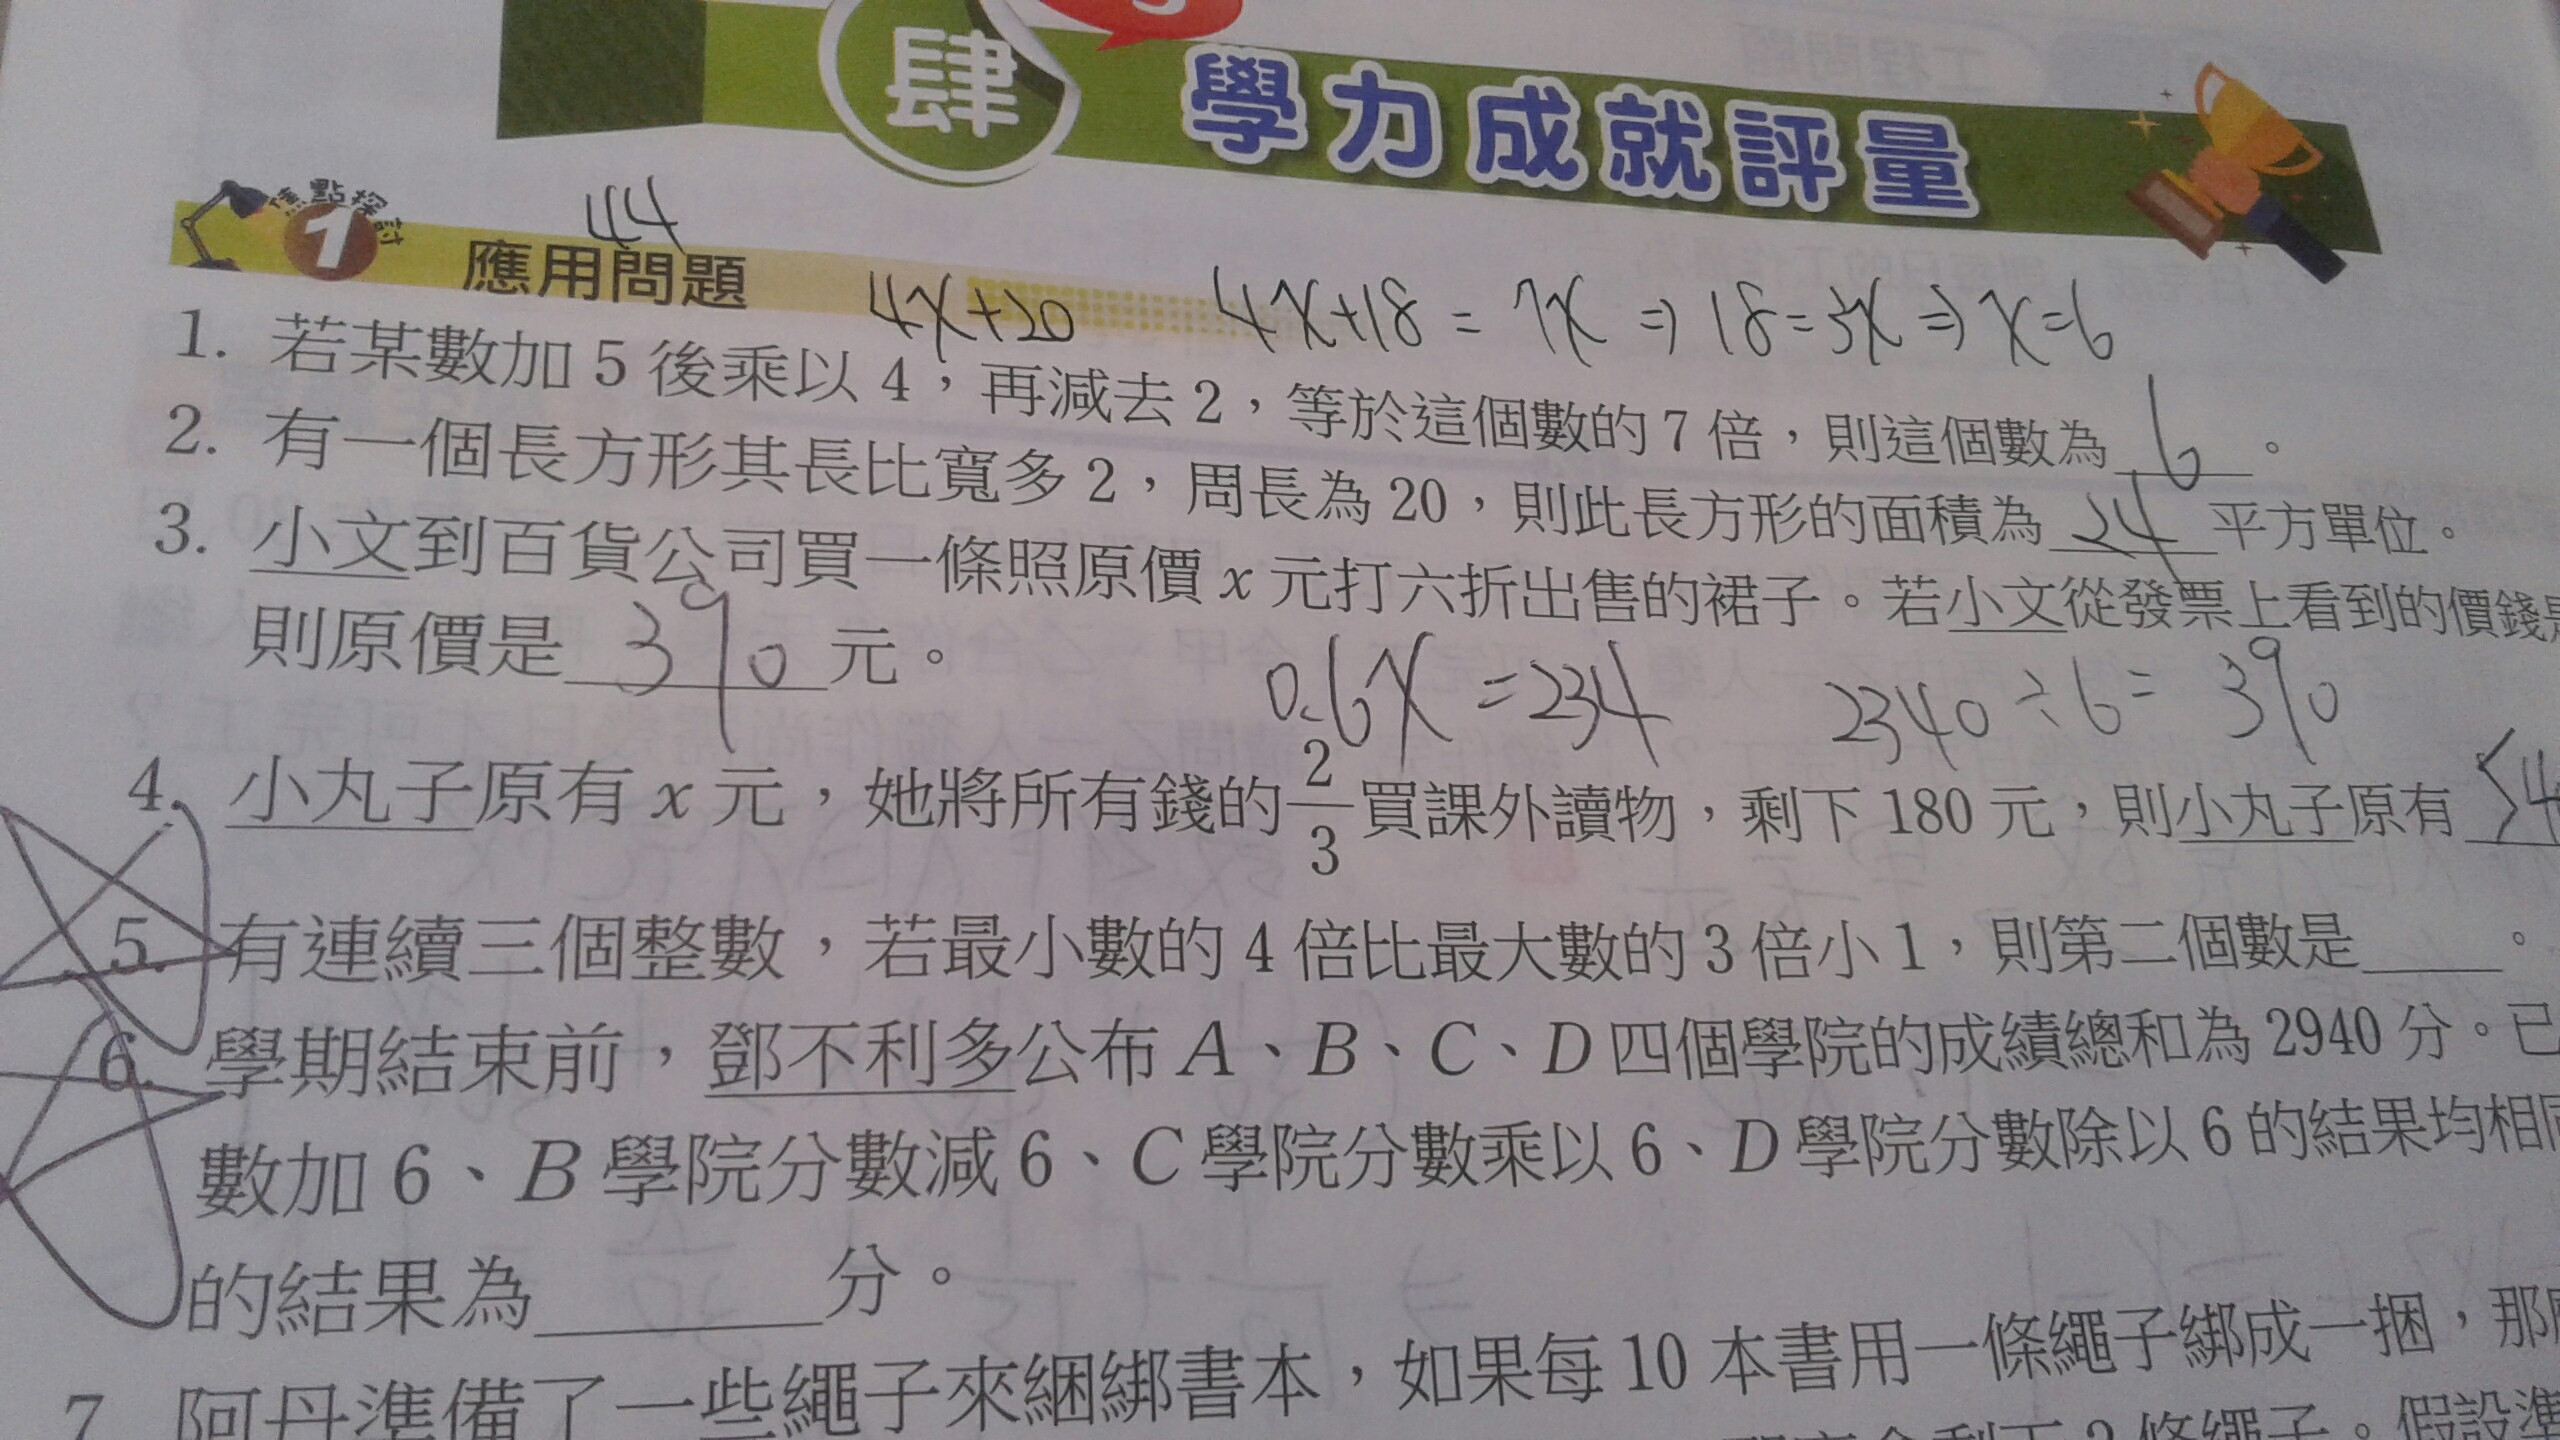 肆 學力成就評量
焦點探討
1 應用問題
44
4x+20 4x+18=7x⇒18=3x⇒x=6
1. 若某數加 5 後乘以 4，再減去 2，等於這個數的 7 倍，則這個數為 6 。
2. 有一個長方形其長比寬多 2，周長為 20，則此長方形的面積為 24 平方單位。
3. 小文到百貨公司買一條照原價 x 元打六折出售的裙子。若小文從發票上看到的價錢是
則原價是 390 元。
0.6x=234 2340÷6=390
4. 小丸子原有 x 元，她將所有錢的 2/3 買課外讀物，剩下 180 元，則小丸子原有 54
5. 有連續三個整數，若最小數的 4 倍比最大數的 3 倍小 1，則第二個數是____。
6. 學期結束前，鄧不利多公布 A、B、C、D 四個學院的成績總和為 2940 分。已
數加 6、B 學院分數減 6、C 學院分數乘以 6、D 學院分數除以 6 的結果均相同
的結果為______分。
7. 阿丹準備了一些繩子來綑綁書本，如果每 10 本書用一條繩子綁成一捆，那
剩下 2 條繩子。假設準